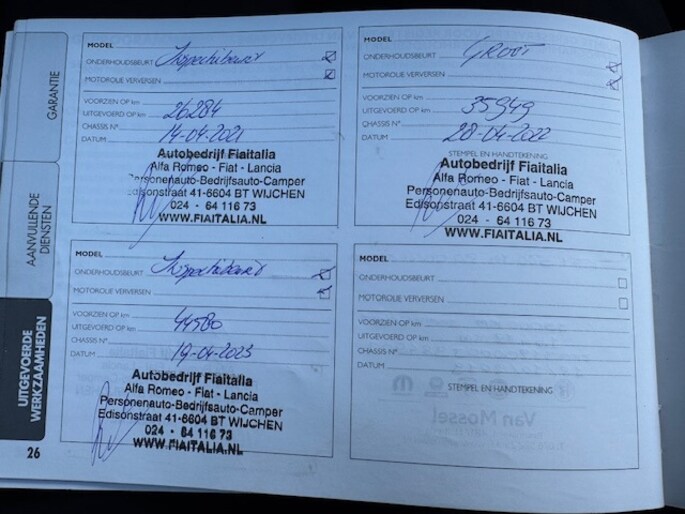 MODEL
ONDERHOUDSBEURT Inspectiebeurt
MOTOROLIE VERVERSEN
VOORZIEN OP km
UITGEVOERD OP km 26284
CHASSIS N°
DATUM 14-04-2021
Autobedrijf Fiaitalia
Alfa Romeo - Fiat - Lancia
Personenauto-Bedrijfsauto-Camper
Edisonstraat 41-6604 BT WIJCHEN
024 - 64 116 73
WWW.FIAITALIA.NL
MODEL
ONDERHOUDSBEURT GROOT
MOTOROLIE VERVERSEN
VOORZIEN OP km
UITGEVOERD OP km 35949
CHASSIS N°
DATUM 28-04-2022
STEMPEL EN HANDTEKENING
Autobedrijf Fiaitalia
Alfa Romeo - Fiat - Lancia
Personenauto-Bedrijfsauto-Camper
Edisonstraat 41-6604 BT WIJCHEN
024 - 64 116 73
WWW.FIAITALIA.NL
MODEL
ONDERHOUDSBEURT Inspectiebeurt
MOTOROLIE VERVERSEN
VOORZIEN OP km
UITGEVOERD OP km 44580
CHASSIS N°
DATUM 19-04-2023
Autobedrijf Fiaitalia
Alfa Romeo - Fiat - Lancia
Personenauto-Bedrijfsauto-Camper
Edisonstraat 41-6604 BT WIJCHEN
024 - 64 116 73
WWW.FIAITALIA.NL
MODEL
ONDERHOUDSBEURT
MOTOROLIE VERVERSEN
VOORZIEN OP km
UITGEVOERD OP km
CHASSIS N°
DATUM
STEMPEL EN HANDTEKENING
Van Mossel
GARANTIE
AANVULLENDE
DIENSTEN
UITGEVOERDE
WERKZAAMHEDEN
26